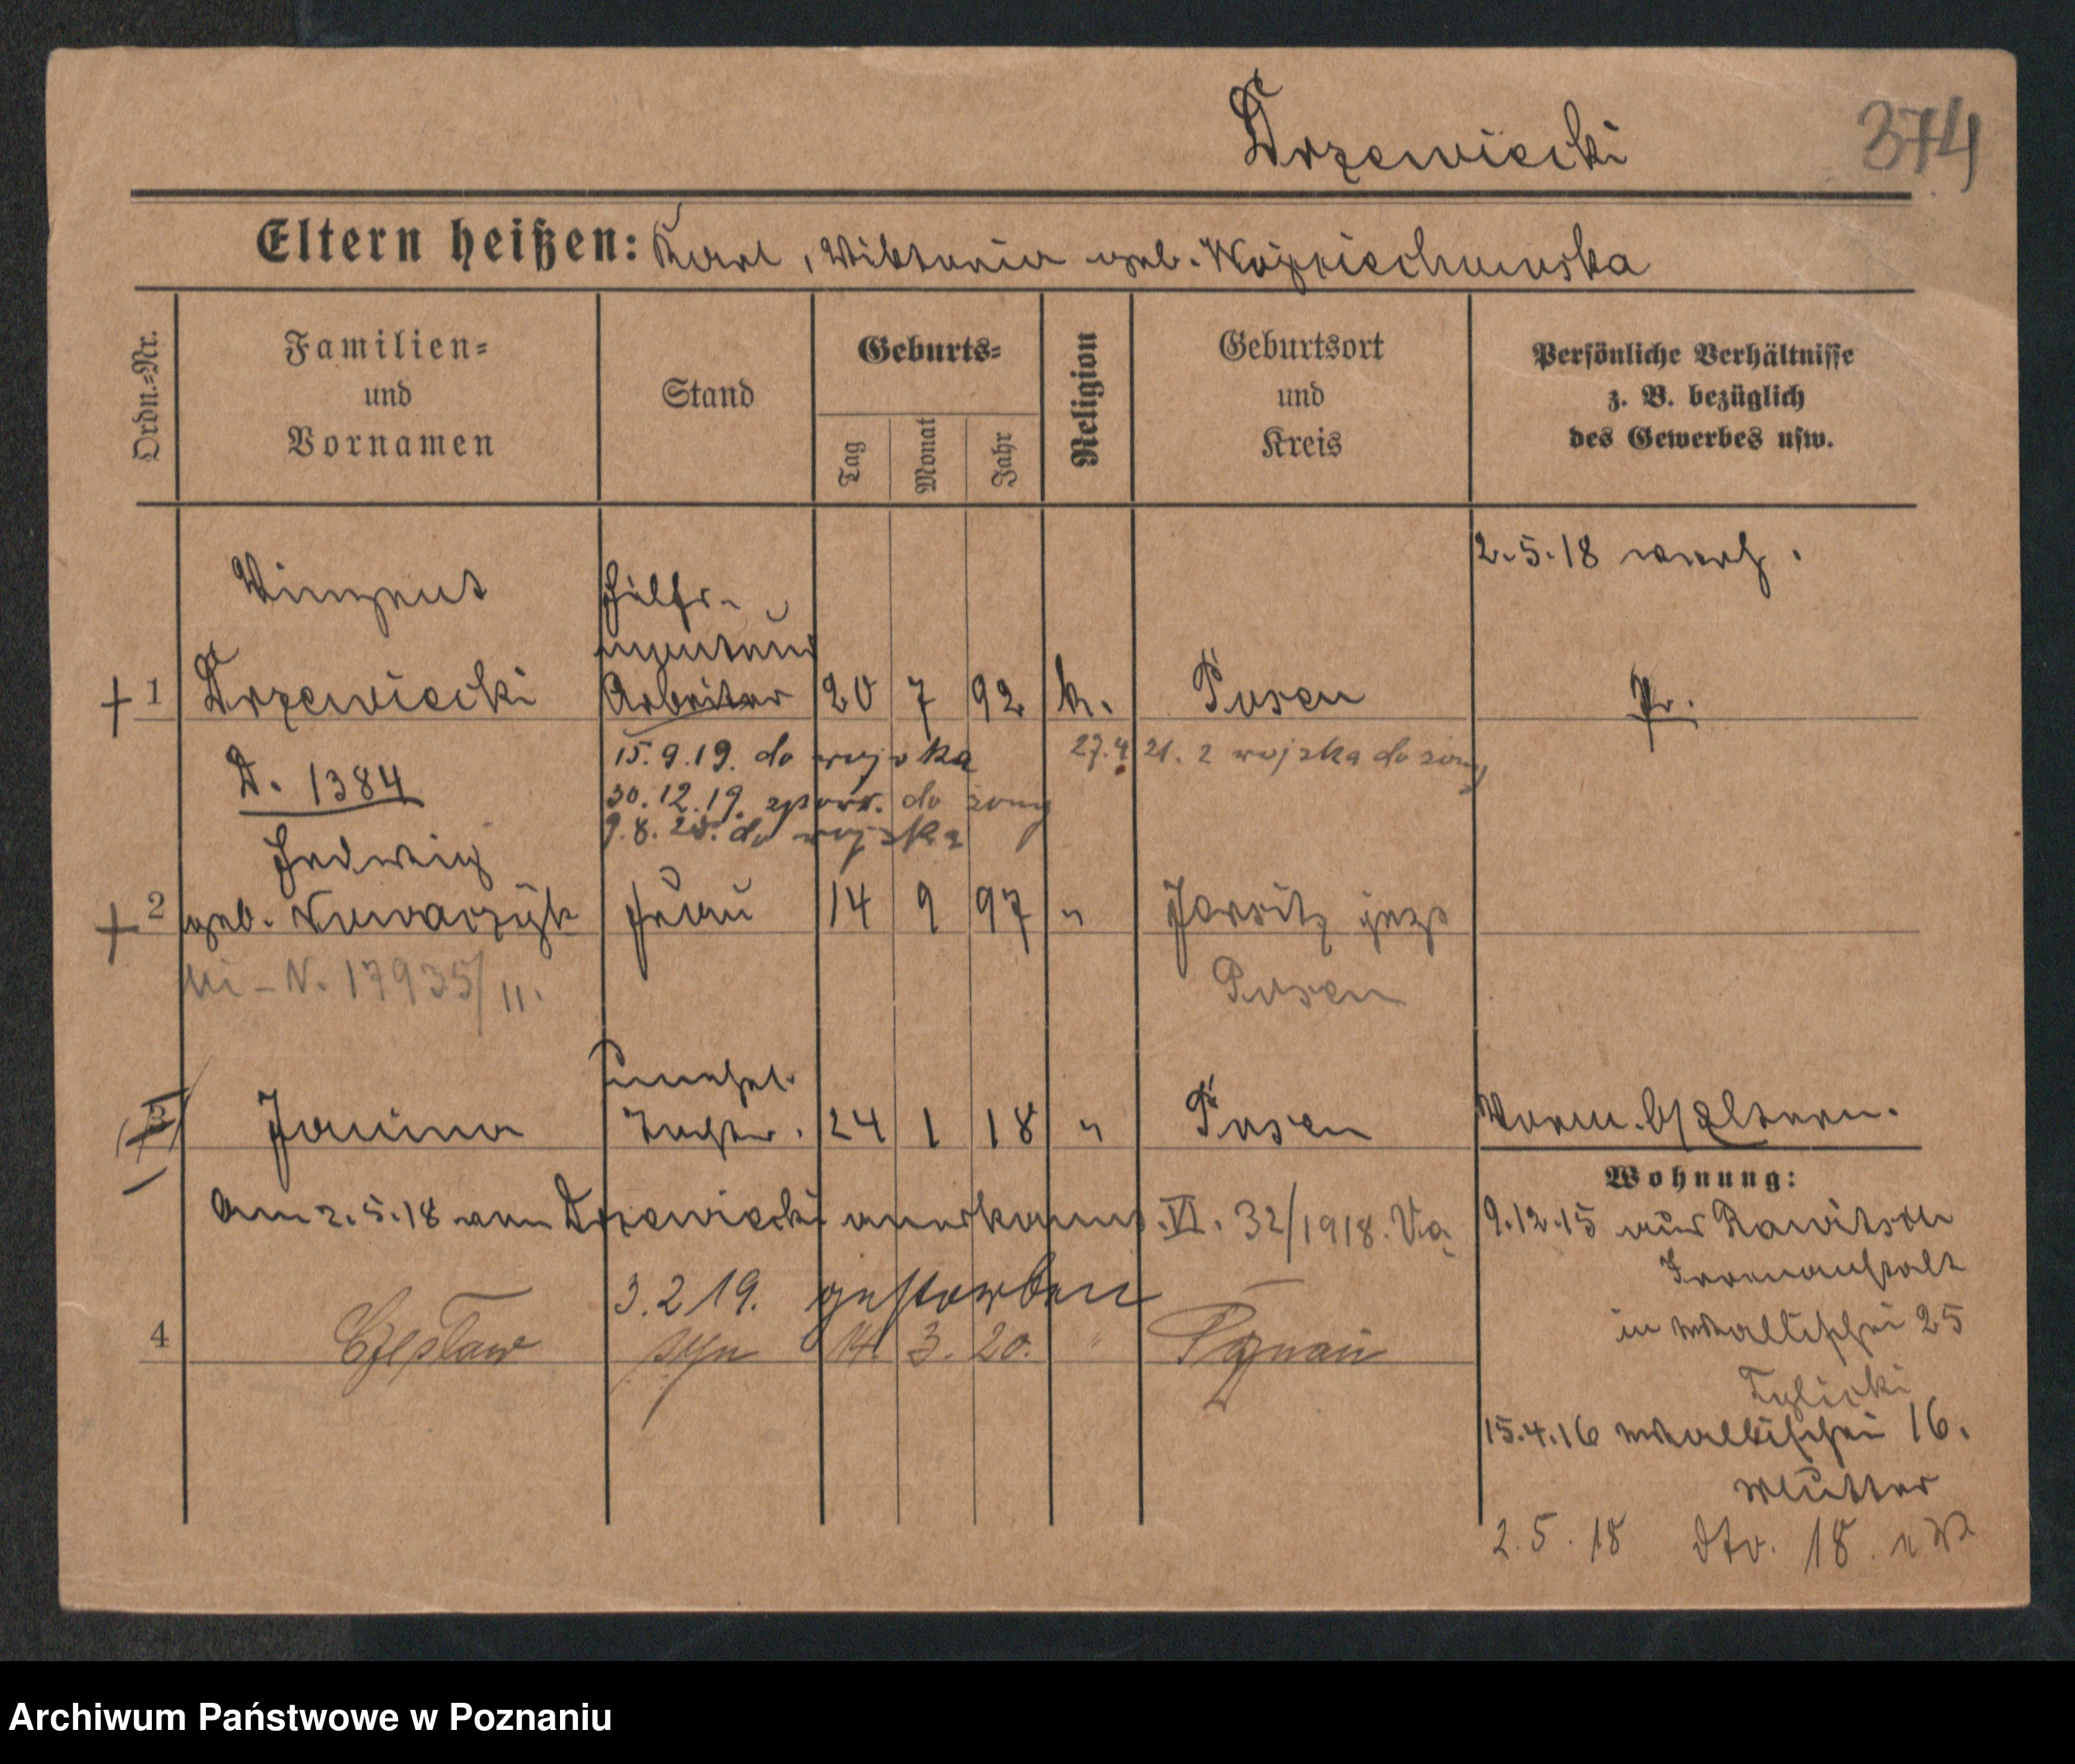 Drzewiecki
374
Eltern heißen: Karl, Viktoria geb. Wojciechowska
Ordn.=Nr.
Familien=
und
Vornamen
Stand
Geburts=
Tag
Monat
Jahr
Religion
Geburtsort
und
Kreis
Persönliche Verhältnisse
z. B. bezüglich
des Gewerbes usw.
2.5.18 verh.
Vinzent
Hilfs-
+ 1 Drzewiecki Arbeiter 20 7 92 k. Posen Pr.
D. 1384
15.9.19. do wojska
27.4 21. z wojska do żony
30.12.19. do żony
9.8.20. do wojska
Hedwig
+ 2 geb. Frau 14 9 97 " Jersitz jezt
N. 17935/II.
Posen
unehel.
3 Janina Tochter. 24 1 18 " Posen Vorm. b/Eltern.
Wohnung:
am 2.5.18 von Drzewiecki anerkannt VI. 32/1918.
3.2.19. gestorben
4 Czesław syn 14. 3. 20. " Poznań
9.12.15 aus Rawitsch
Irrenanstalt
in Wallischei 25
15.4.16 Wallischei 16.
Mutter
2.5.18 dto. 18
Archiwum Państwowe w Poznaniu